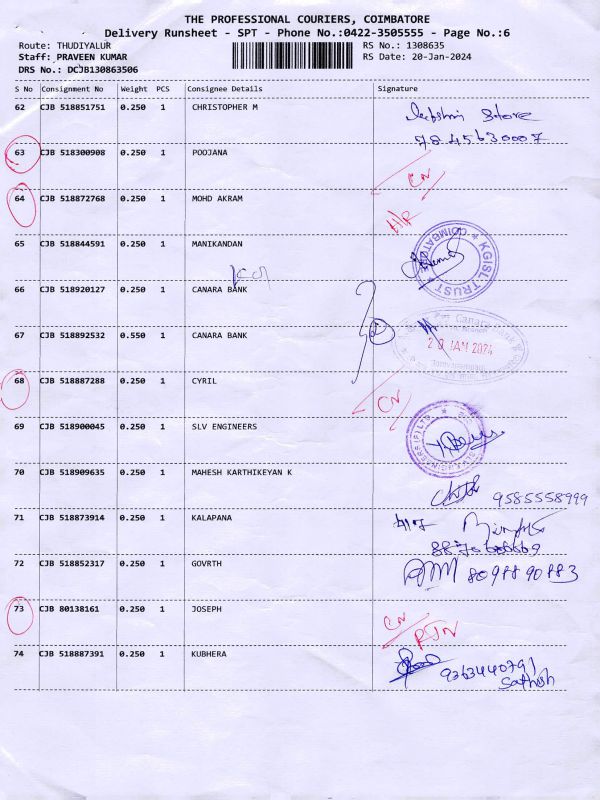 THE PROFESSIONAL COURIERS, COIMBATORE
Delivery Runsheet - SPT - Phone No.:0422-3505555 - Page No.:6
Route: THUDIYALUR RS No.: 1308635
Staff: PRAVEEN KUMAR RS Date: 20-Jan-2024
DRS No.: DCJB130863506
S No Consignment No Weight PCS Consignee Details Signature
62 CJB 518851751 0.250 1 CHRISTOPHER M
Store
7845630007
63 CJB 518300908 0.250 1 POOJANA
CN
64 CJB 518872768 0.250 1 MOHD AKRAM
65 CJB 518844591 0.250 1 MANIKANDAN
KGISL TRUST * COIMBATORE *
66 CJB 518920127 0.250 1 CANARA BANK
67 CJB 518892532 0.550 1 CANARA BANK
Canara Bank
20 JAN 2024
68 CJB 518887288 0.250 1 CYRIL
CN
69 CJB 518900045 0.250 1 SLV ENGINEERS
70 CJB 518909635 0.250 1 MAHESH KARTHIKEYAN K
9585558999
71 CJB 518873914 0.250 1 KALAPANA
72 CJB 518852317 0.250 1 GOVRTH
8098890883
73 CJB 80138161 0.250 1 JOSEPH
CN
RTN
74 CJB 518887391 0.250 1 KUBHERA
9363440791
Sathish